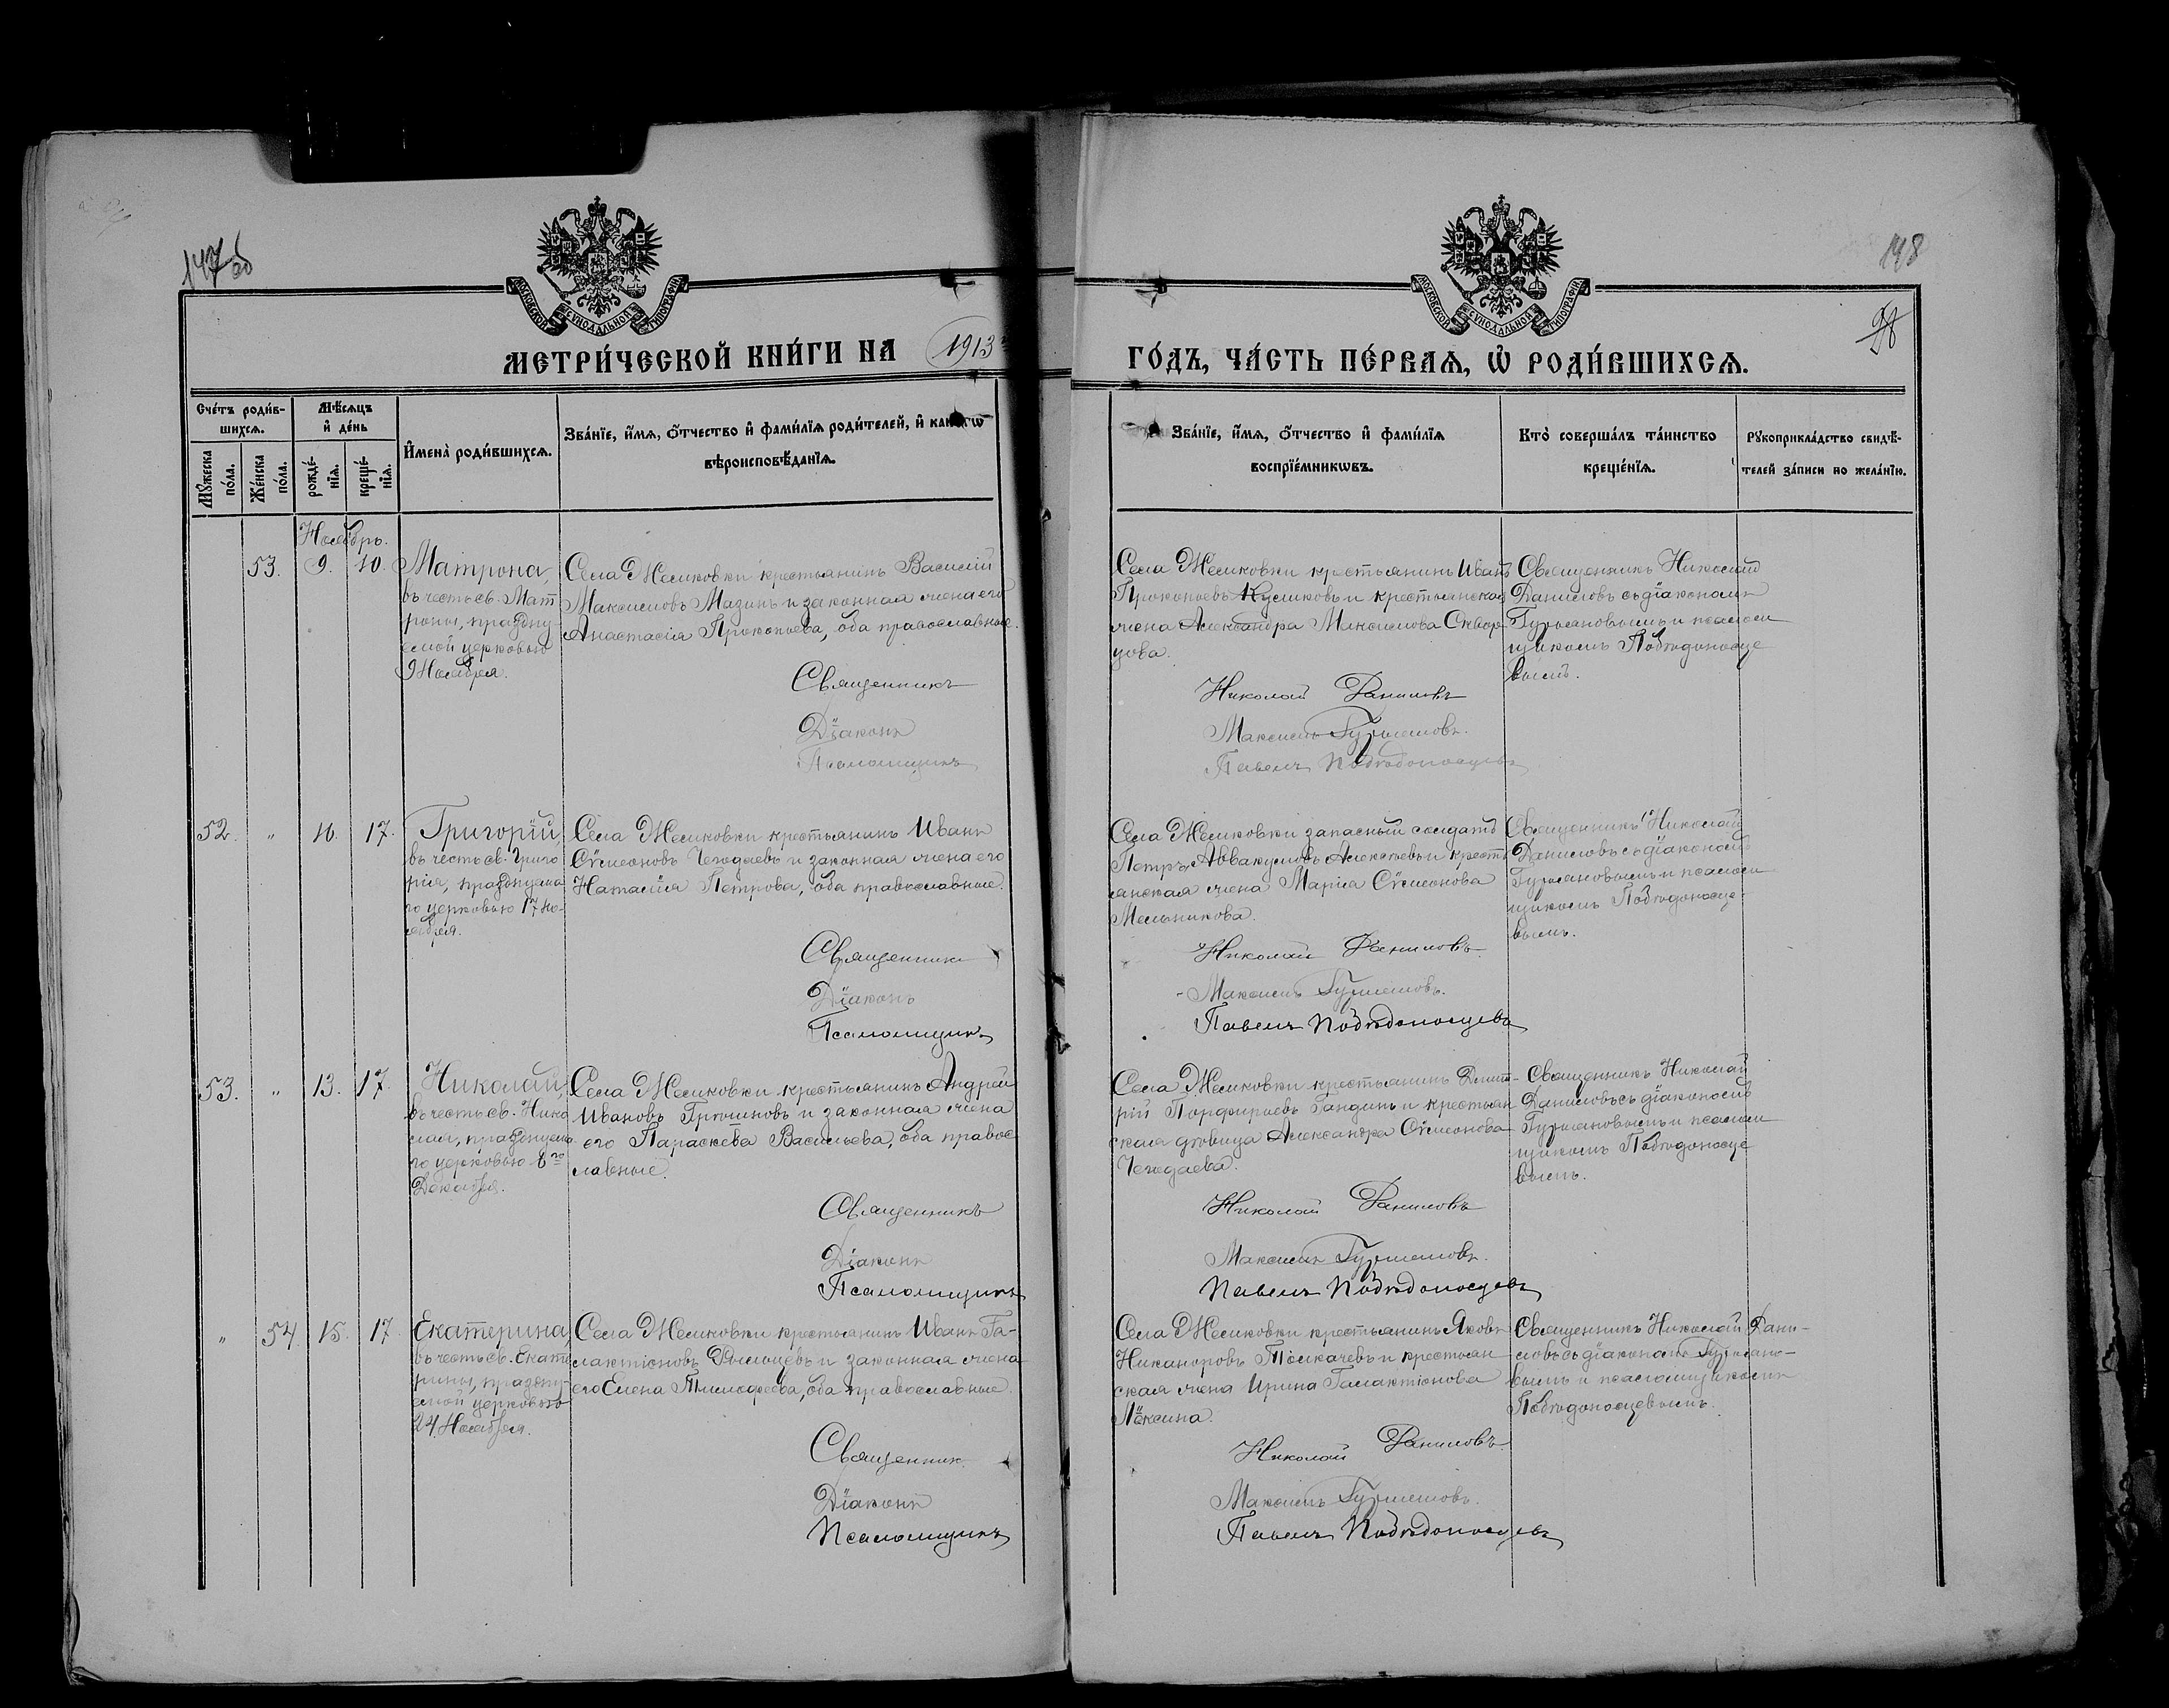 147 об
148
98
МОСКОВСКОЙ СѴНОДАЛЬНОЙ ТИПОГРАФІИ
МОСКОВСКОЙ СѴНОДАЛЬНОЙ ТИПОГРАФІИ
МЕТРИ́ЧЕСКОЙ КНИ́ГИ НА 1913
ГО́ДЪ, ЧА́СТЬ ПЕ́РВАѦ, Ѡ҆ РОДИ́ВШИХСѦ.
Сче́тъ роди́в-
шихсѧ.
Мѣ́сѧцъ
и҆ де́нь
Мꙋ́жеска
по́ла.
Же́нска
по́ла.
рожде́-
нїѧ.
креще́-
нїѧ.
И҆мена̀ роди́вшихсѧ.
Зва́нїе, и҆́мѧ, ѻ҆́тчество и҆ фами́лїѧ роди́телей, и҆ како́гѡ
вѣроисповѣ́данїѧ.
Зва́нїе, и҆́мѧ, ѻ҆́тчество и҆ фами́лїѧ
воспрїе́мникѡвъ.
Кто̀ соверша́лъ та́инство
креще́нїѧ.
Рꙋкоприкла́дство свидѣ́-
телей за́писи по жела́нїю.
Ноябрь.
53. 9. 10. Матрона,
въ честь св. Мат
роны, праздну-
емой церковью
9 Ноября.
Села Жемковки крестьянинъ Василій
Максимовъ Мазинъ и законная жена его
Анастасія Прокопьева, оба православные.
Священникъ
Діаконъ
Псаломщикъ
Села Жемковки крестьянинъ Иванъ
Прокопьевъ Кусмковъ и крестьянская
жена Александра Максимова Сквор-
цова.
Николай Даниловъ
Максимъ
Павелъ Побѣдоносцевъ
Священникъ Николай
Даниловъ съ діакономъ
и псаломщ
щикомъ Побѣдоносце
вымъ.
52. " 10. 17. Григорій,
въ честь св. Григо
рія, празднуема
го церковью 17 но-
ября.
Села Жемковки крестьянинъ Иванъ
Сѵмеоновъ Чегодаевъ и законная жена его
Наталія Петрова, оба православные.
Священникъ
Діаконъ
Псаломщикъ
Села Жемковки запасный солдатъ
Петръ Аввакумовъ Алексѣевъ и кресть
янская жена Марія Сѵмеонова
Мельникова.
Николай Даниловъ
Максимъ
Павелъ Побѣдоносцевъ
Священникъ Николай
Даниловъ съ діакономъ
и псаломщ
щикомъ Побѣдоносце-
вымъ.
53. " 13. 17. Николай,
въ честь св. Нико
лая, празднуемо
го церковью 6го
Декабря.
Села Жемковки крестьянинъ Андрей
Ивановъ Гришиновъ и законная жена
его Параскева Васильева, оба правос
лавные.
Священникъ
Діаконъ
Псаломщикъ
Села Жемковки крестьянинъ Димит-
рій Порфирьевъ Гандинъ и крестьян
ская дѣвица Александра Сѵмеонова
Чегодаева.
Николай Даниловъ
Максимъ
Павелъ Побѣдоносцевъ
Священникъ Николай
Даниловъ съ діакономъ
и псаломщ
щикомъ Побѣдоносце
вымъ.
" 54. 15. 17. Екатерина,
въ честь св. Екате
рины, праздну-
емой церковью
24 Ноября.
Села Жемковки крестьянинъ Иванъ Га-
лактіоновъ и законная жена
его Елена Тимофеева, оба православные.
Священникъ
Діаконъ
Псаломщикъ
Села Жемковки крестьянинъ Яковъ
Никаноровъ Толкачевъ и крестьян
ская жена Ирина Галактіонова
Лёксина.
Николай Даниловъ
Максимъ
Павелъ Побѣдоносцевъ
Священникъ Николай Дани-
ловъ съ діакономъ
вымъ и псаломщикомъ
Побѣдоносцевымъ.